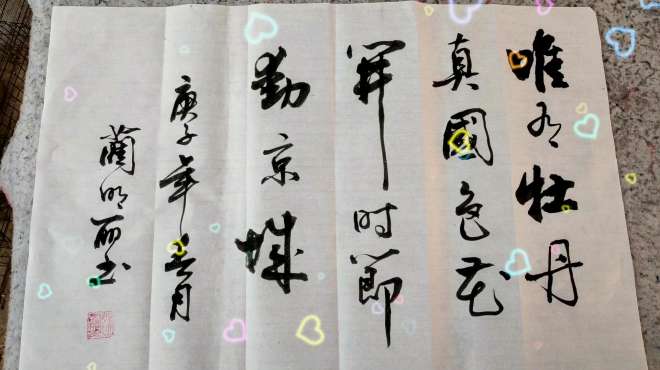 唯有牡丹
真國色花
開时節
動京城
庚子年春月
蘭明丽书